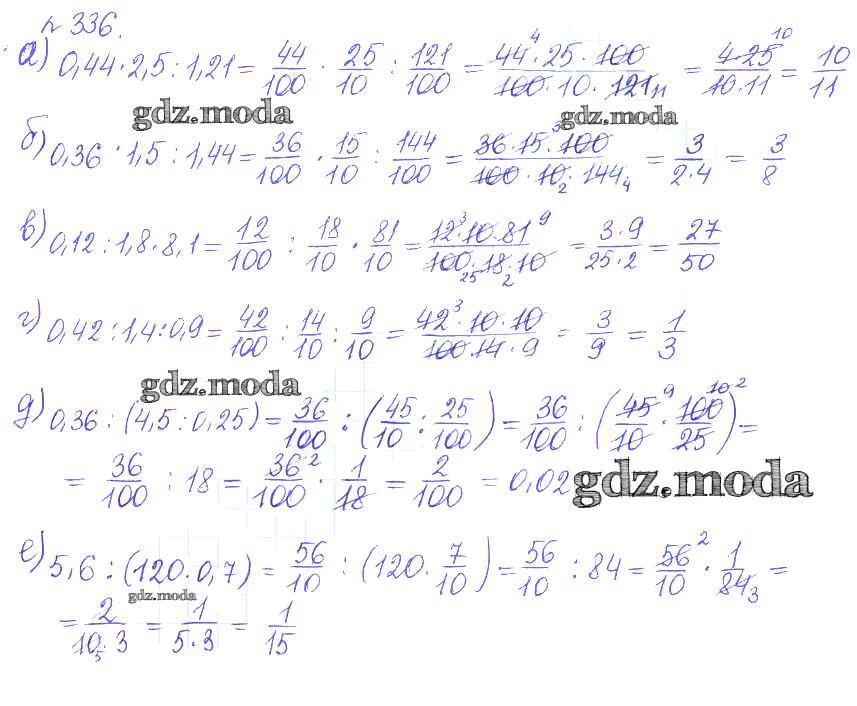 № 336.
а) 0,44·2,5:1,21 = 44/100 · 25/10 : 121/100 = 44⁴·25·100/100·10·121₁₁ = 4·25¹⁰/10·11 = 10/11
gdz.moda gdz.moda
б) 0,36·1,5:1,44 = 36/100 · 15/10 : 144/100 = 36·15³·100/100·10₂·144₄ = 3/2·4 = 3/8
в) 0,12:1,8·8,1 = 12/100 : 18/10 · 81/10 = 12³·10·81⁹/100₂₅·18₂·10 = 3·9/25·2 = 27/50
г) 0,42:1,4:0,9 = 42/100 : 14/10 : 9/10 = 42³·10·10/100·14·9 = 3/9 = 1/3
gdz.moda
д) 0,36:(4,5:0,25) = 36/100 : (45/10 : 25/100) = 36/100 : (45⁹/10 · 100¹⁰ ²/25) =
= 36/100 : 18 = 36²/100 · 1/18 = 2/100 = 0,02
gdz.moda
е) 5,6:(120·0,7) = 56/10 : (120·7/10) = 56/10 : 84 = 56²/10 · 1/84₃ =
gdz.moda
= 2/10₅·3 = 1/5·3 = 1/15